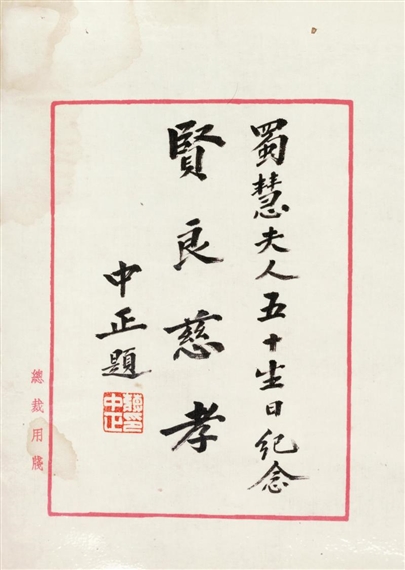 蜀慧夫人五十生日紀念
賢良慈孝
中正題
蔣印
中正
總裁用牋